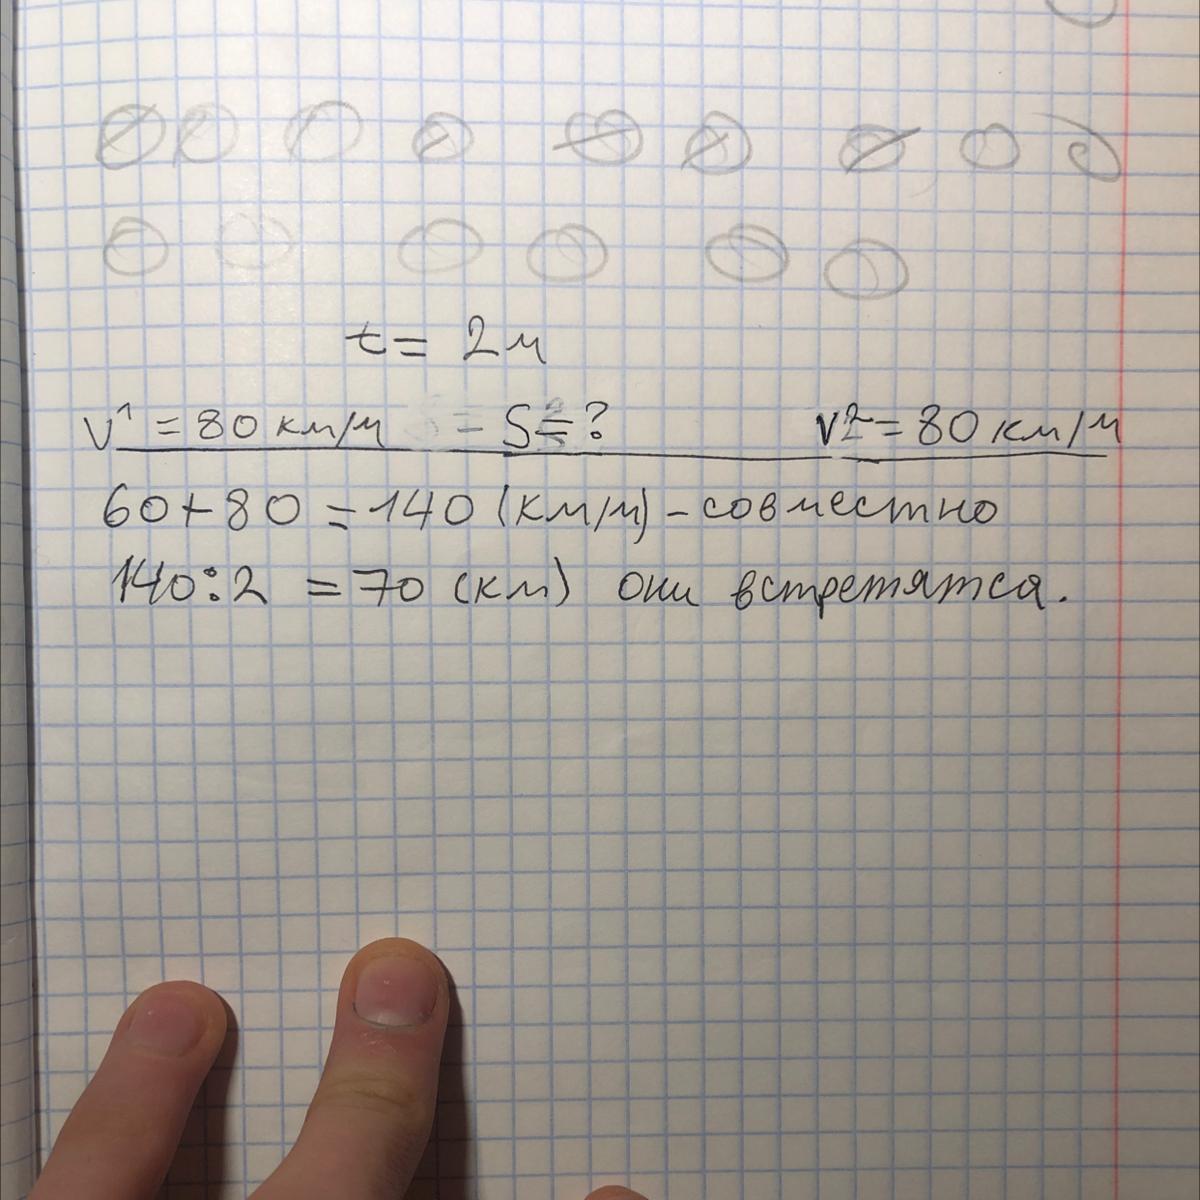 t = 2ч
v1 = 80 км/ч S = ? v2 = 80 км/ч
60 + 80 = 140 (км/ч) - совместно
140 : 2 = 70 (км) они встретятся.